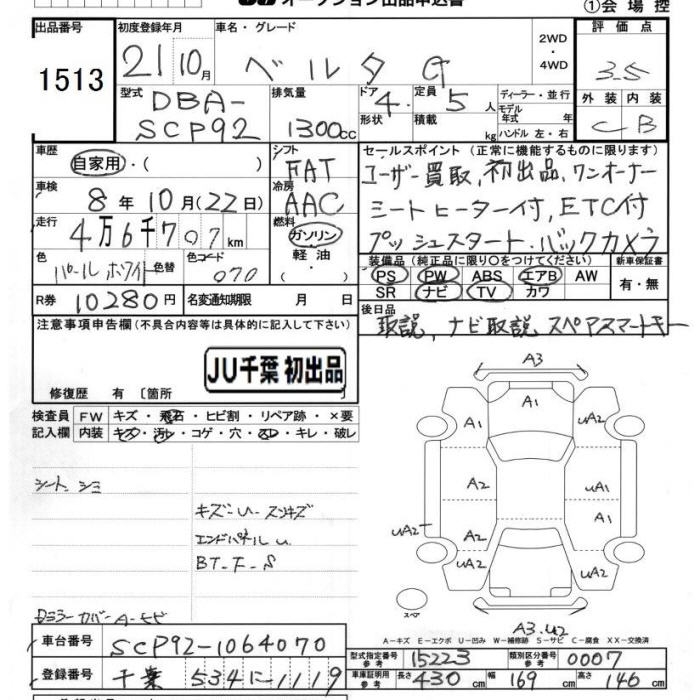 オークション出品申込書
①会場控
出品番号
1513
初度登録年月
21 10月
車名・グレード
ベルタ G
2WD
・
4WD
評価点
3.5
外装 内装
C B
型式
DBA-
SCP92
排気量
1300cc
ドア 4.
形状
定員 5 人
積載 kg
ディーラー・並行
モデル
年式 年
ハンドル 左・右
車歴
自家用・( )
シフト
FAT
車検
8年10月(22日)
冷房
AAC
走行
4万6千707km
燃料
ガソリン
・
軽油
・( )
色
パールホワイト
色替
色コード
070
R券 10280円
名変通知期限 月 日
セールスポイント(正常に機能するものに限ります)
ユーザー買取,初出品,ワンオーナー
シートヒーター付,ETC付
プッシュスタート・バックカメラ
装備品(純正品に限り○をつけてください) 新車保証書
PS PW ABS エアB AW
SR ナビ TV カワ
有・無
後日品
取説,ナビ取説 スペアスマートキー
注意事項申告欄(不具合内容等は具体的に記入して下さい)
JU千葉 初出品
修復歴 有〔箇所 〕
検査員 FW キズ・飛石・ヒビ割・リペア跡・×要
記入欄 内装 キズ・汚レ・コゲ・穴・スレ・キレ・破レ
シート シミ
キズ-U- スリキズ
エンドパネル U
BT-F-S
A3
A1
A1 UA2
A2 UA1
A2 A1
UA2
UA2 A2 UA2
スペア
A3.U2
A-キズ E-エクボ U-凹み W-補修跡 S-サビ C-腐食 XX-交換済
車台番号 SCP92-1064070
登録番号 千葉 534 に-1119
型式指定番号
参考
15223
類別区分番号
参考
0007
車庫証明用
参考
長さ 430 cm 幅 169 cm 高さ 146 cm